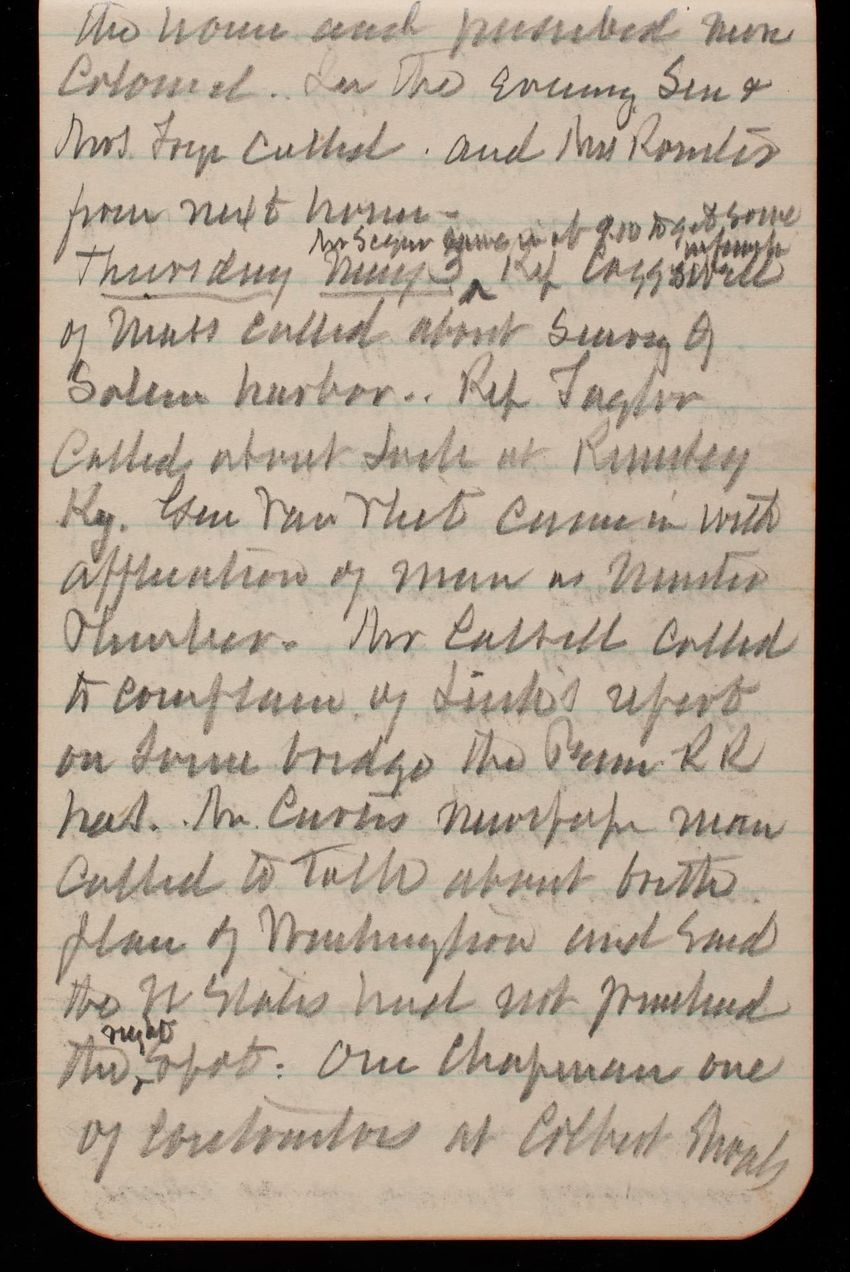 the house and
Colonel. In the Evening Gen &
Mrs. called. and Mrs
from next house -
Mr Segur came in at 9.10 to get some
Thursday May 3 Rep Coggswell
of Mass called about Survey of
Salem harbor.. Rep Taylor
Called about Lock at Rumsey
Ky. Gen Van Vliet came in with
application of man as
Mr Cassell called
to complain of Link's report
on some bridge the Penn R R
has. Mr. Curtis newspape man
Called to talk about
plan of Washington and Said
the U States had not purchased
right
the spot: One Chapman one
of contractors at Colbert Shoals